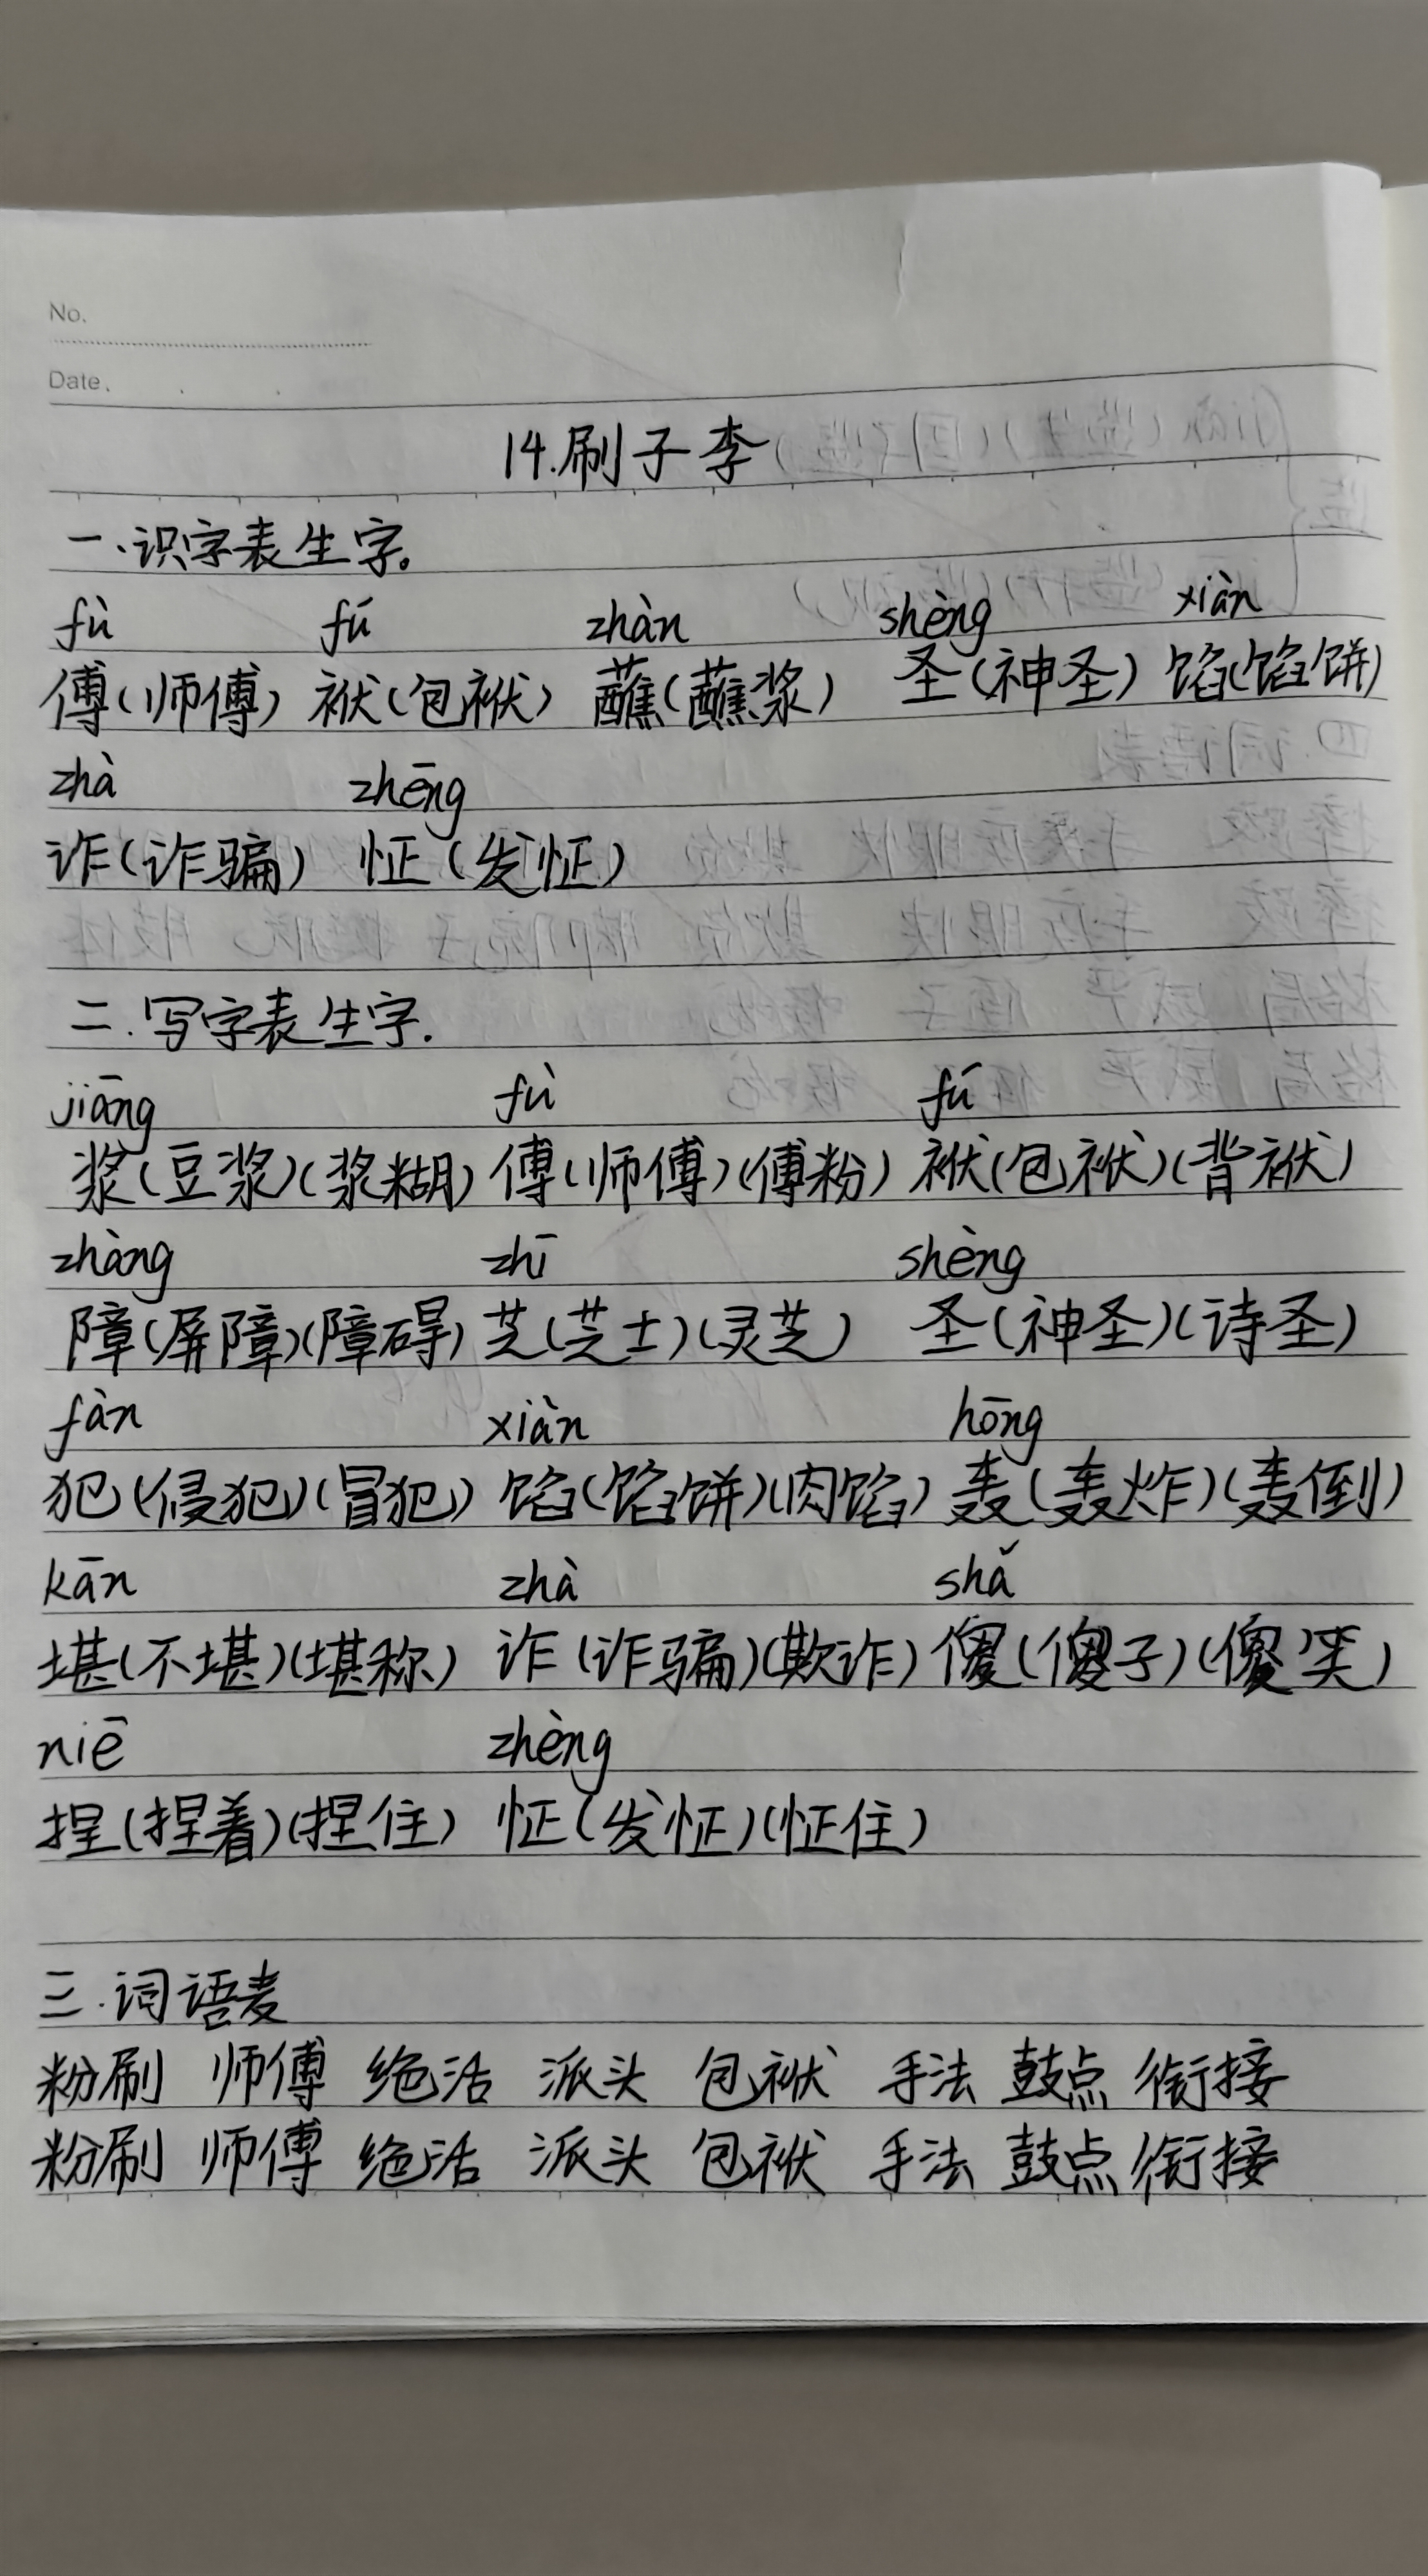 No.
Date.
14.刷子李
一、识字表生字。
fù fú zhàn shèng xiàn
傅(师傅) 袱(包袱) 蘸(蘸浆) 圣(神圣) 馅(馅饼)
zhà zhēng
诈(诈骗) 怔(发怔)
二.写字表生字.
jiāng fù fú
浆(豆浆)(浆糊) 傅(师傅)(傅粉) 袱(包袱)(背袱)
zhàng zhī shèng
障(屏障)(障碍) 芝(芝士)(灵芝) 圣(神圣)(诗圣)
fàn xiàn hōng
犯(侵犯)(冒犯) 馅(馅饼)(肉馅) 轰(轰炸)(轰倒)
kān zhà shǎ
堪(不堪)(堪称) 诈(诈骗)(欺诈) 傻(傻子)(傻笑)
niē zhèng
捏(捏着)(捏住) 怔(发怔)(怔住)
三.词语表
粉刷 师傅 绝活 派头 包袱 手法 鼓点 衔接
粉刷 师傅 绝活 派头 包袱 手法 鼓点 衔接